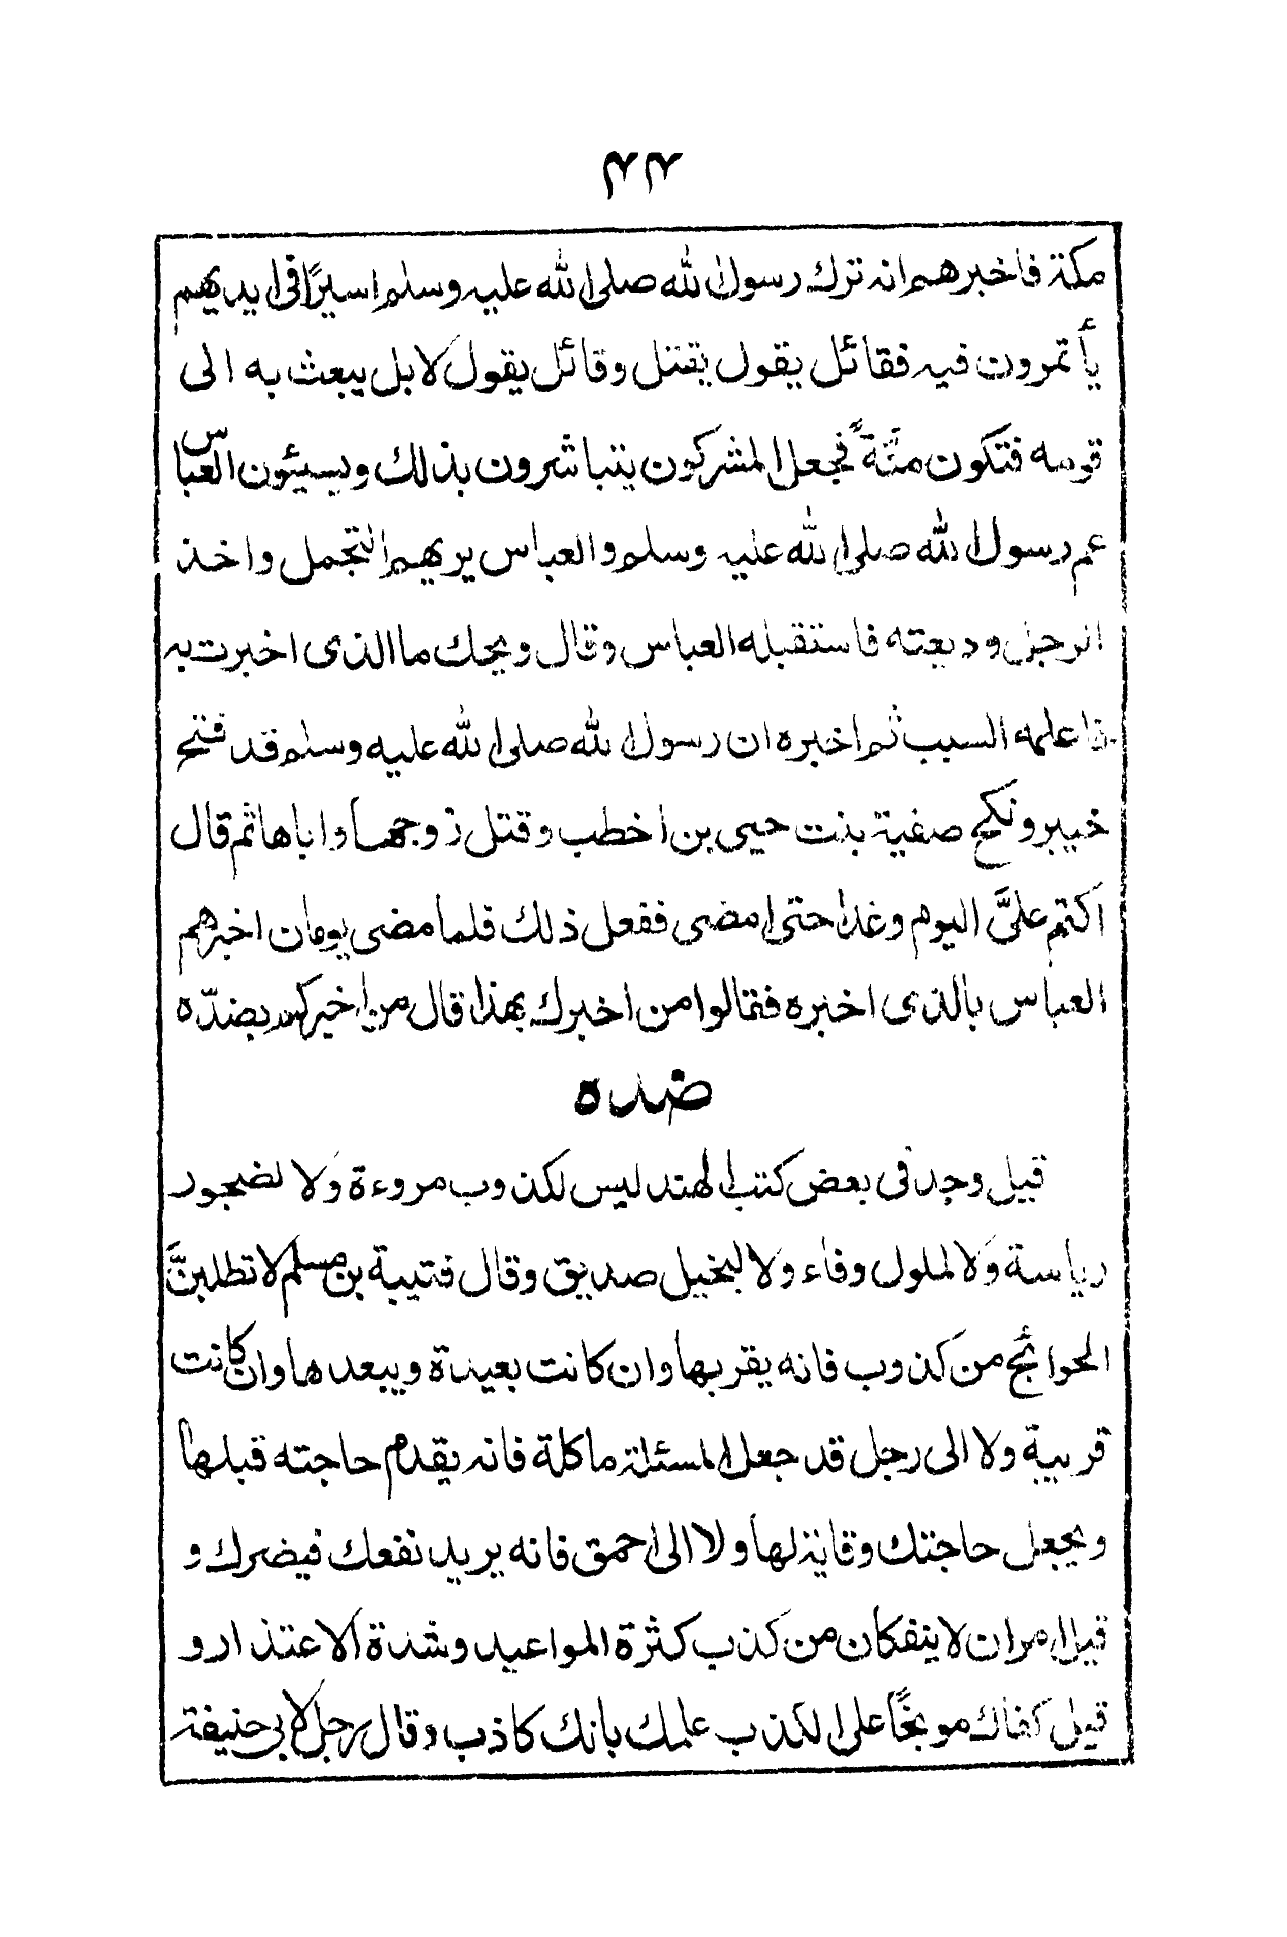 ٤٤
مكة فاخبرهم انه ترك رسول الله صلى الله عليه وسلم اسيرًا فى ايديهم
يأتمرون فيه فقائل يقول يقتل وقائل يقول لا بل يبعث به الى
قومه فتكون منَّةً فجعل المشركون يتباشرون بذلك ويسيئون العباس
عم رسول الله صلى الله عليه وسلم والعباس يريهم التجمل واخذ
الرجل وديعته فاستقبله العباس وقال ويحك ما الذى اخبرت به
فاعلمه السبب ثم اخبره ان رسول الله صلى الله عليه وسلم قد فتح
خيبر ونكح صفية بنت حيى بن اخطب وقتل زوجها واباها ثم قال
اكتم علىَّ اليوم وغدا حتى امضى ففعل ذلك فلما مضى يومان اخبرهم
العباس بالذى اخبره فقالوا من اخبرك بهذا قال من اخبركم بضدّه
ضده
قيل وجد فى بعض كتب الهند ليس لكذوب مروءة ولا لضجور
رياسة ولا لملول وفاء ولا لبخيل صديق وقال قتيبة بن مسلم لا تطلبنَّ
الحوائج من كذوب فانه يقربها وان كانت بعيدة ويبعدها وان كانت
قريبة ولا الى رجل قد جعل المسئلة ماكلة فانه يقدم حاجته قبلها
ويجعل حاجتك وقاية لها ولا الى احمق فانه يريد نفعك فيضرك و
قيل امران لا ينفكان من كذب كثرة المواعيد وشدة الاعتذار و
قيل كفاك موبخًا على الكذب علمك بانك كاذب وقال رجل لابى حنيفة